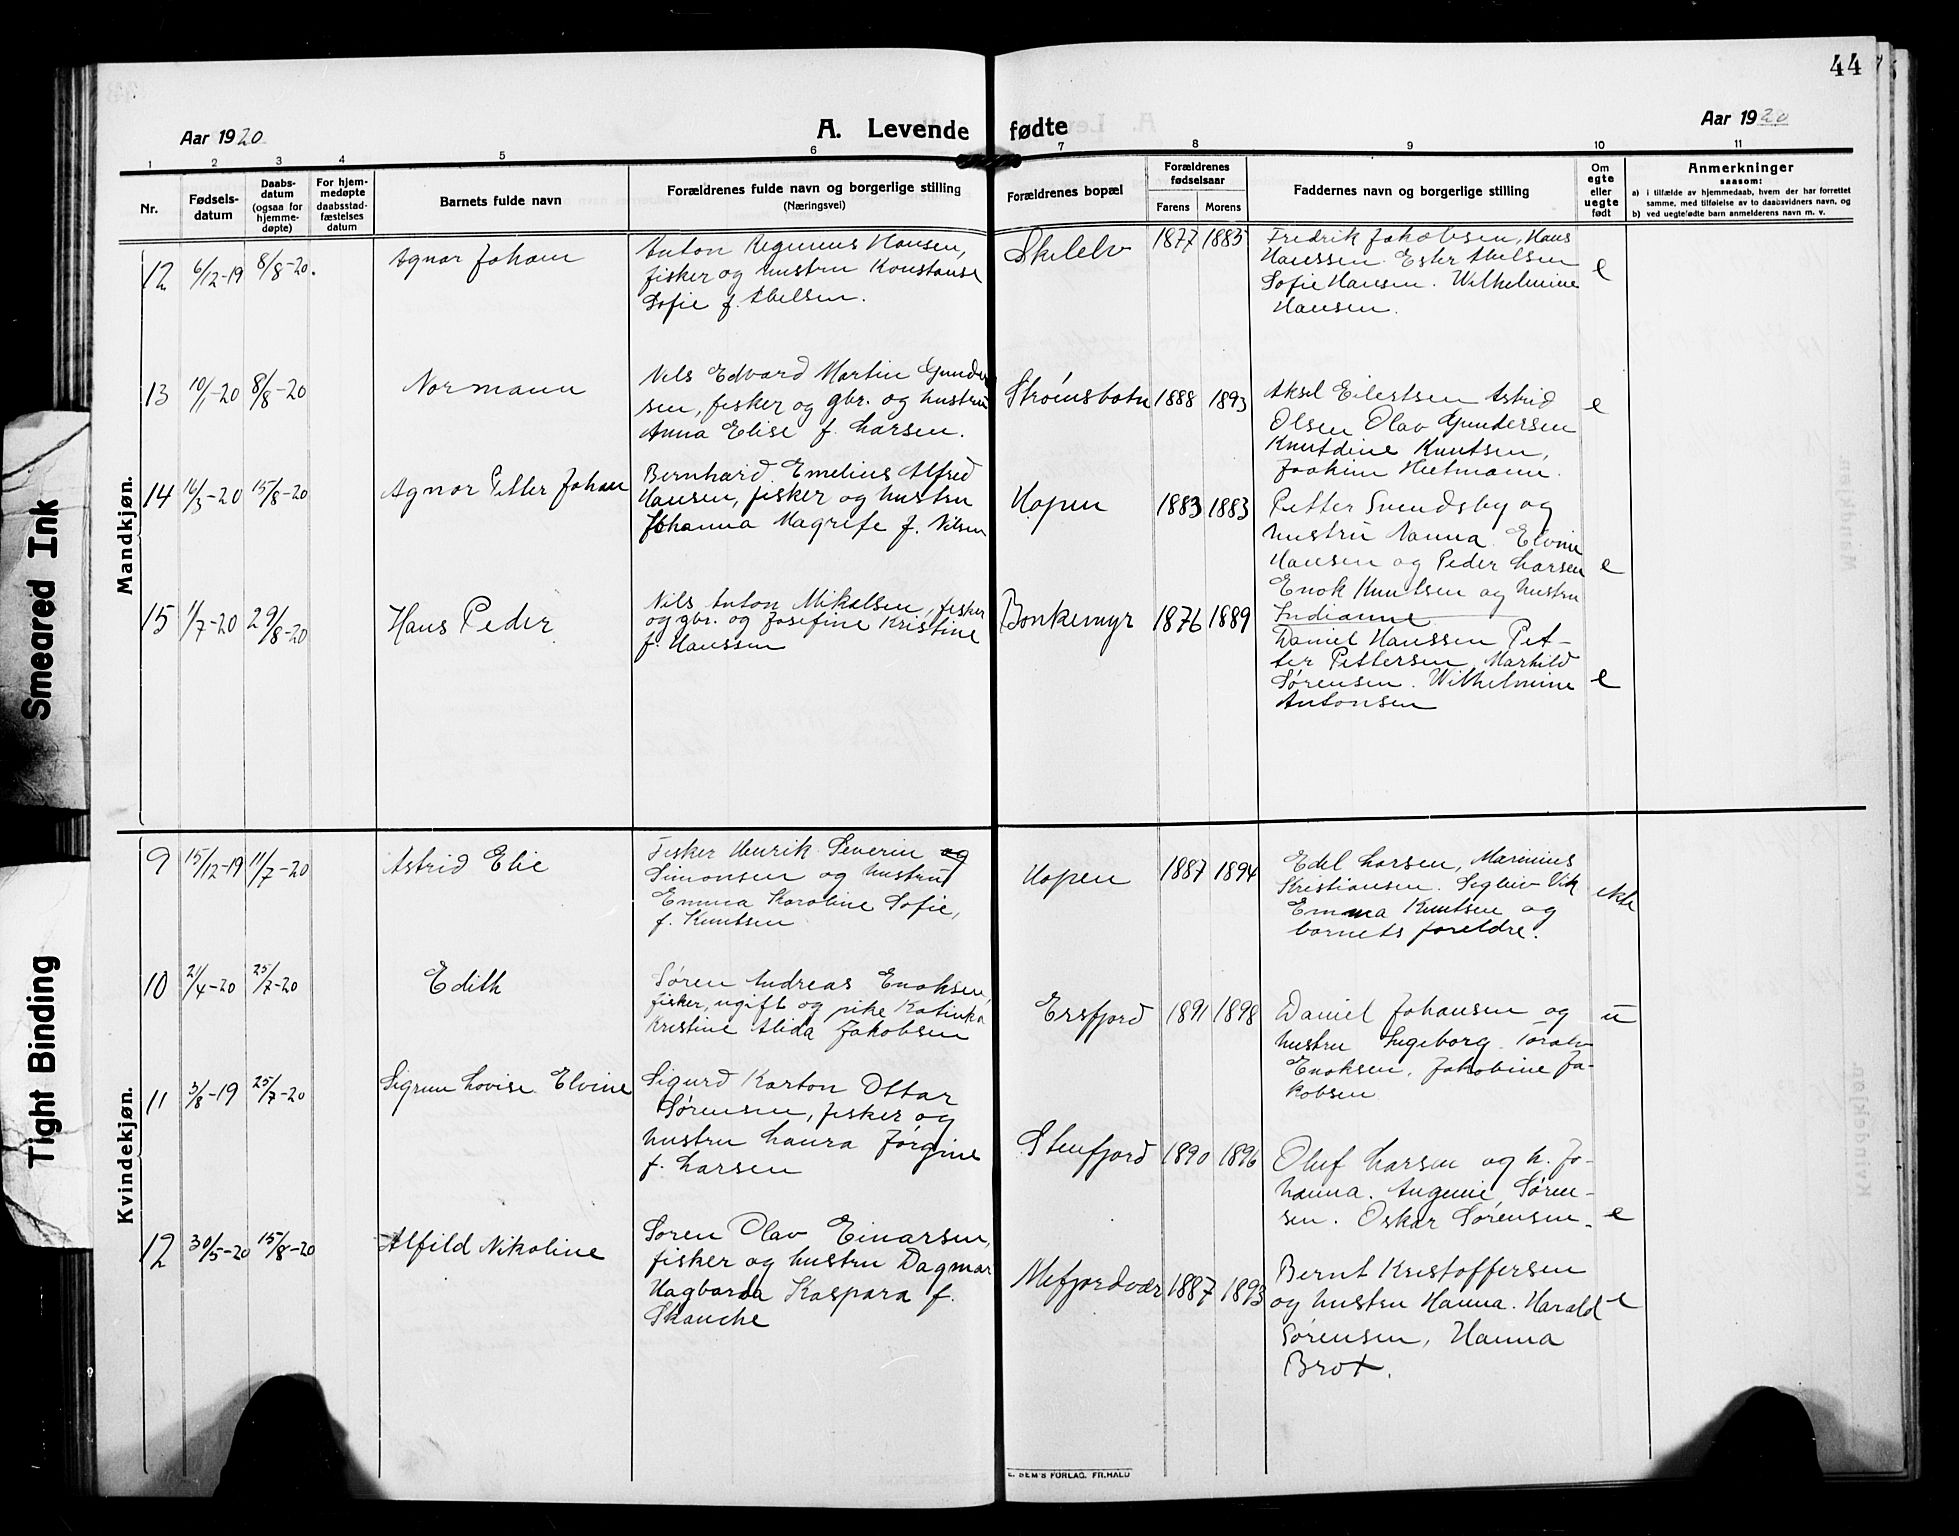 44
Aar 1920
A. Levende fødte
Aar 1920
1 2 3 4 5 6 7 8 9 10 11
Nr.
Fødsels-
datum
Daabs-
datum
(ogsaa for
hjemme-
døpte)
For hjem-
medøpte
daabsstad-
fæstelses
datum
Barnets fulde navn
Forældrenes fulde navn og borgerlige stilling
(Næringsvei)
Forældrenes bopæl
Forældrenes
fødselsaar
Farens Morens
Faddernes navn og borgerlige stilling
Om
egte
eller
uegte
født
Anmerkninger
saasom:
a) i tilfælde av hjemmedaab, hvem der har forrettet
samme, med tilføielse av to daabsvidners navn, og
b) ved uegtefødte barn anmelderens navn m. v.
Mandkjøn.
12 6/12-19 8/8-20. Agnar Johan
Anton Regineus Hansen,
fisker og hustru Konstanse
Sofie f. Abelsen.
Skilelv 1877 1885
Fredrik Jakobsen, Hans
Hanssen. Ester Abelsen
Sofie Hansen. Wilhelmine
Hansen.
e
13 10/1-20 8/8-20 Normann
Nils Edvard Martin Gunder
sen, fisker og gbr. og hustru
Anna Elise f. Larsen.
Strømsbotn 1888 1893
Aksel Eilertsen Astrid
Olsen Olav Gundersen
Knutdine Knutsen,
Joakim Heitmann.
e
14 16/3-20 15/8-20 Agnar Petter Johan
Bernhard Emelius Alfred
Hansen, fisker og hustru
Johanna Magrete f. Nilsen
Hopen 1883 1883
Petter Svendsby og
hustru Nanna. Elvine
Hansen og Peder Larsen
Enok Knutsen og hustru
Indianne
e
15 1/7-20 29/8-20 Hans Peder
Nils Anton Mikalsen, fisker
og gbr. og Josefine Kristine
f. Hanssen
Bonkemyr 1876 1889
Daniel Hanssen Pet-
ter Pettersen, Marhild
Sørensen. Wilhelmine
Antonsen
e
Kvindekjøn.
9 15/12-19 11/7-20 Astrid Elie
Fisker Henrik Severin og
Simonsen og hustru
Emma Karoline Sofie,
f. Knutsen
Hopen 1887 1894
Edel Larsen, Marinius
Kristiansen. Sigleiv Vik
Emma Knutsen og
barnets foreldre.
ekte
10 21/4-20 25/7-20 Edith
Søren Andreas Enoksen,
fisker, ugift og pike Katinka
Kristine Alida Jakobsen
Ersfjord 1891 1898
Daniel Johansen og
hustru Ingeborg. Toralv
Enoksen. Jakobine Ja-
kobsen
u
11 3/8-19 25/7-20 Sigrun Lovise Elvine
Sigurd Karton Ottar
Sørensen, fisker og
hustru Laura Jørgine
f. Larsen
Stenfjord 1890 1896
Oluf Larsen og h. Jo-
hanna. Angenie Søren-
sen. Oskar Sørensen.
e
12 30/5-20 15/8-20 Alfild Nikoline
Søren Olav Einarsen,
fisker og hustru Dagmar
Hagbarda Kaspara f.
Skanche
Mefjordvær 1887 1893
Bernt Kristoffersen
og hustru Hanna. Harald
Sørensen, Hanna
Brox.
e
E. SEM'S FORLAG. FR.HALD
Smeared Ink
Tight Binding